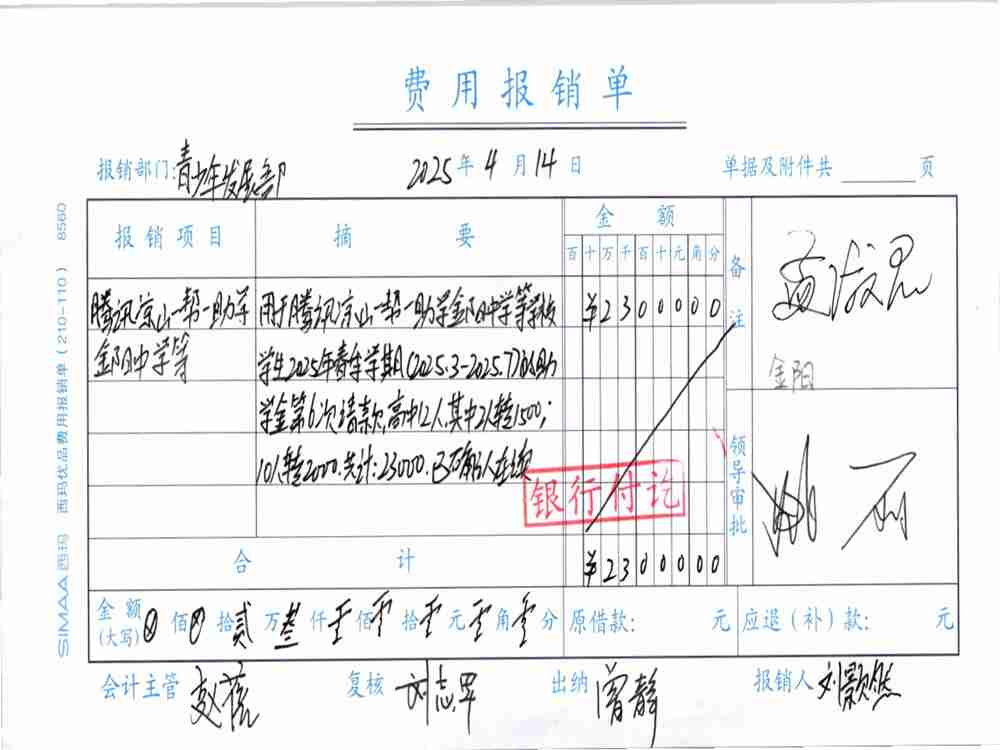 费用报销单
报销部门:青少年发展部 2025年4月14日 单据及附件共 页
SIMAA 西玛 西玛优品费用报销单(210-110) 8560
报销项目 摘要 金额 备注
百十万千百十元角分
腾讯京山一帮一助学 用于腾讯京山一帮一助学金阳中学等学校 ¥2300000
金阳中学等 学生2025年春季学期(2025.3-2025.7)的助
学金第6次请款,高中12人,其中2人转1500;
10人转2000.共计:23000.已确认在读
金阳
银行付讫
领导审批
合计 ¥2300000
金额(大写) 0佰0拾贰万叁仟零佰零拾零元零角零分 原借款: 元 应退(补)款: 元
会计主管 复核 刘志军 出纳 曾静 报销人 刘颢然